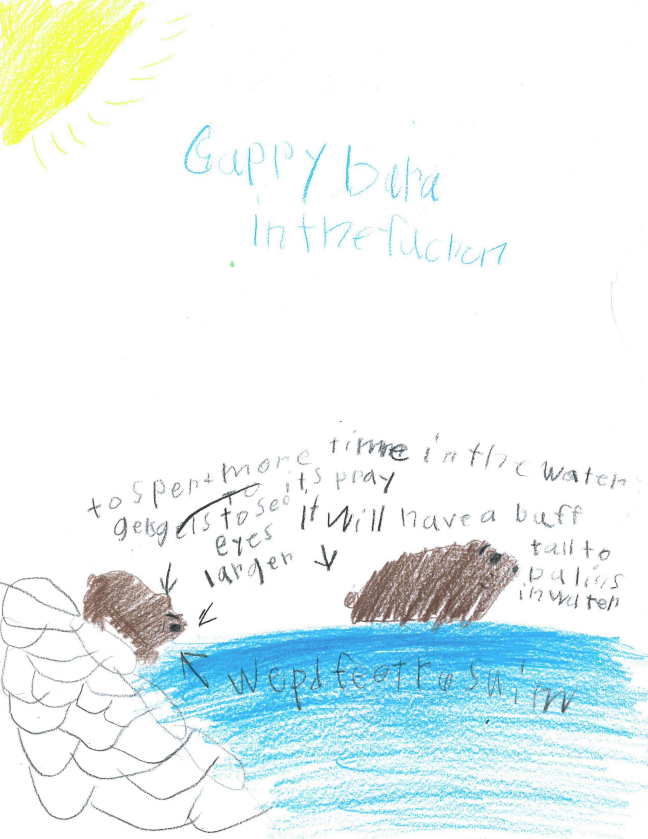 Gappy bara
in the fuchon
to spent more time in the water
to its pray
gels to see
eyes
larger
It will have a buff
tail to
balins
in water
wepd feet to swim